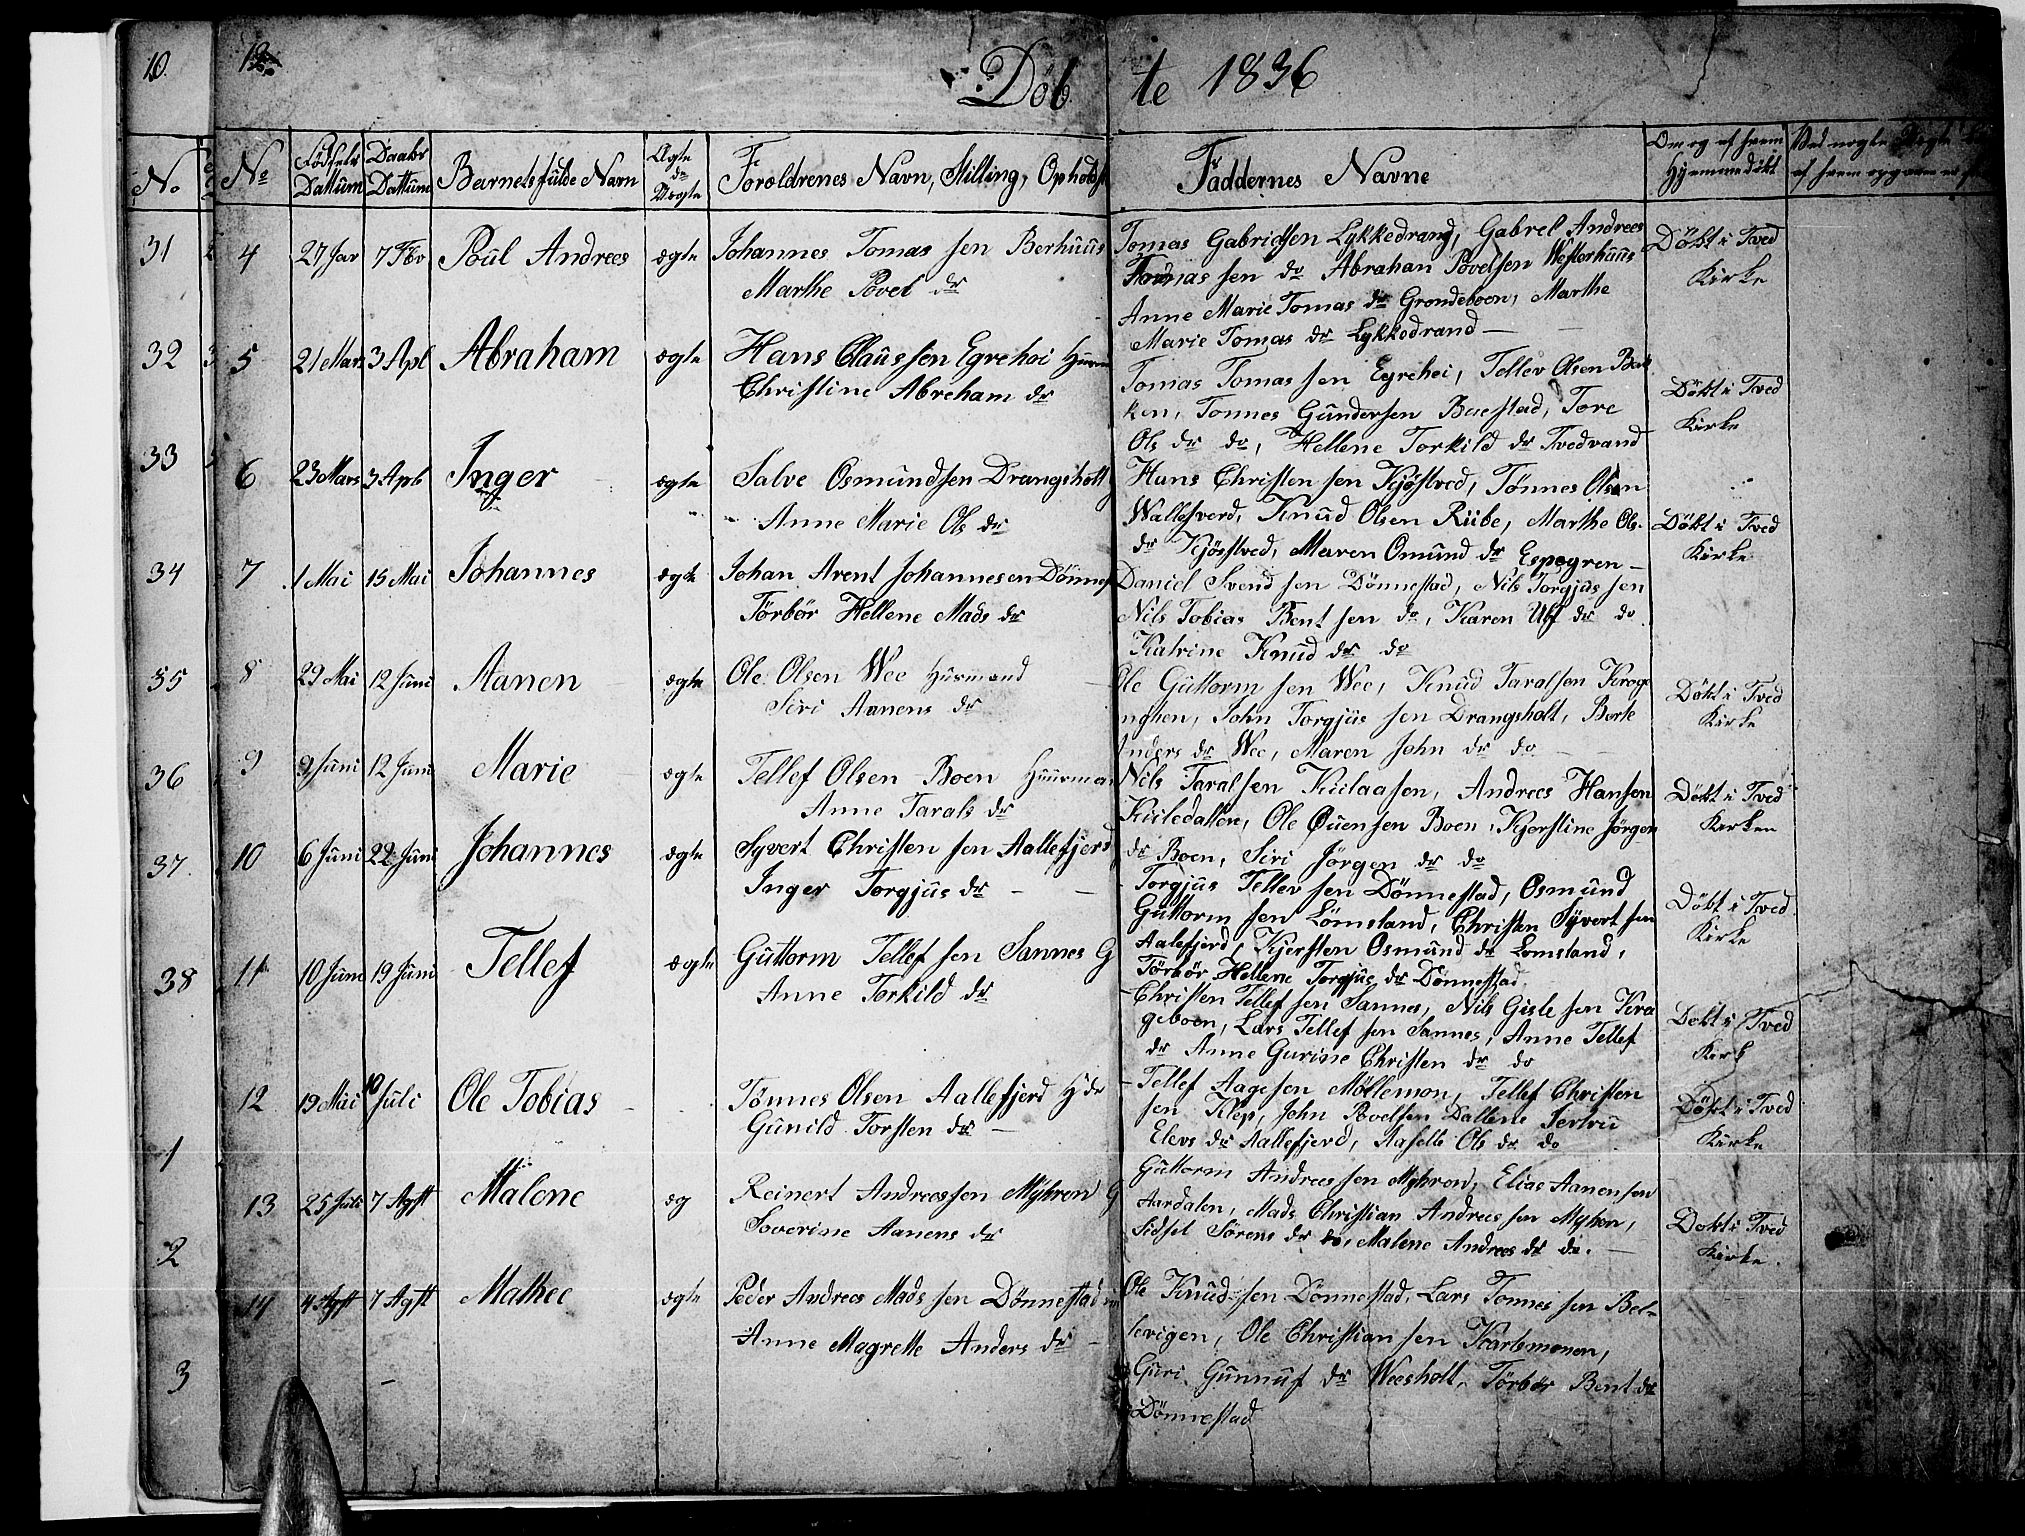 10. 12
Döbte 1836
No No Fødsels Dattum Daabs Dattum Barnets fulde Navn Ægte do Uægte Foroldrenes Navn, Stilling, Opholdst Faddernes Navne Om og af hvem Hjemmedøbt
31 4 27 Jar 7 Fbr Poul Andrees ægte Johannes Tomas sen Berhuus
Marthe Povel dr
Tomas Gabrielsen Lykkedrang, Gabrel Andrees
Tomas sen do Abrahan Povelsen Westerhuus
Anne Marie Tomas dr Grondeboen, Marthe
Marie Tomas dr Lykkedrand —
Döbt i Tved
Kirke
32 5 21 Mars 3 Apl Abraham ægte Hans Claussen Egrehei
Christine Abreham dr
Tomas Tomas sen Egrehei, Tellev Olsen Bak
ken, Tonnes Gundersen Boestad, Tore
Ols dr do, Hellene Torkild dr Tvedvand
Döbt i Tved
Kirke
33 6 23 Mars 3 Apl Inger ægte Salve Osmundsen Drangsholt
Anne Marie Ols dr
Hans Christen sen Kjöstved, Tönnes Olsen
Wallesverd, Knud Olsen Ribe, Marthe Ols
dr Kjöstved, Maren Omund dr Espegren —
Döbt i Tved
Kirke
34 7 1 Mai 15 Mai Johannes ægte Johan Arent Johannesen Dönnes
Törbör Hellene Mads dr
Daniel Svend sen Dönnestad, Nils Torgjus sen
Nils Tobias Bent sen do, Karen Ulf dr do
Katrine Knud dr do
35 8 29 Mai 12 Juni Aanen ægte Ole Olsen Wee Husmand
Siri Aanens dr
Ole Guttorm sen Wee, Knud Taralsen Kroge
nghen, John Torgjus sen Drangsholt, Borte
Anders dr Wee, Maren John dr do
Döbt i Tved
Kirke
36 9 9 Juni 12 Juni Marie ægte Tellef Olsen Boen Huusman
Anne Tarals dr
Nils Taralsen Kulaasen, Andrees Hansen
Kuiledallen, Ole Ouensen Boen, Kjerstine Jörgen
dr Boen, Siri Jörgen dr do
Döbt i Tved
Kirken
37. 10 6 Juni 22 Juni Johannes ægte Syvert Christen sen Aallefjerd
Inger Torgjus dr —
Torgjus Tellev sen Dönnestad, Osmund
Guttorm sen Lömsland, Christen Syvert sen
Aalefjerd, Kjersten Osmund dr Lomsland,
Törbör Hellene Torgjus dr Dönnestad
Döbt i Tved
Kirke
38 11 10 Juni 19 Juni Tellef ægte Guttorm Tellef sen Sannes G
Anne Torkild dr
Christen Tellef sen Sannes, Nils Gisle sen Kra
geboen, Lars Tellef sen Sannes, Anne Tellef
dr Anne Gurine Christen dr do
Debt i Tved
Kirk
12 19 Mai 10 Juli Ole Tobias Tönnes Olsen Aallefjerd
Gunild Torsten dr —
Tellef Aagesen Möllemon, Tellef Christen
sen Klep, John Povelsen Dallene Sertru
Elevs dr Aallefjerd, Aaselle Ols dr do
Döbt i Tved
Kirke
1 13 25 Juli 7 Agst Malene æg Reinert Andreessen Myhren G
Soverine Aanens dr
Guttorm Andrees sen Myhren, Elias Aanensen
Aardalen, Mads Christian Andrees sen Myhen,
Sidsel Sörens dr do, Malene Andrees dr do. —
Dobt i Tved
Kirke.
2 14 4 Agst 7 Agst Mathee ægte Peder Andrees Mads sen Dönnestad
Anne Magrette Anders dr —
Ole Knud sen Dönnestad, Lars Tonnes sen Bel-
levigen, Ole Christian sen Karlsmonen,
Guri Gunnuf dr Weesholt, Törbör Bent dr
Dönnestad
3